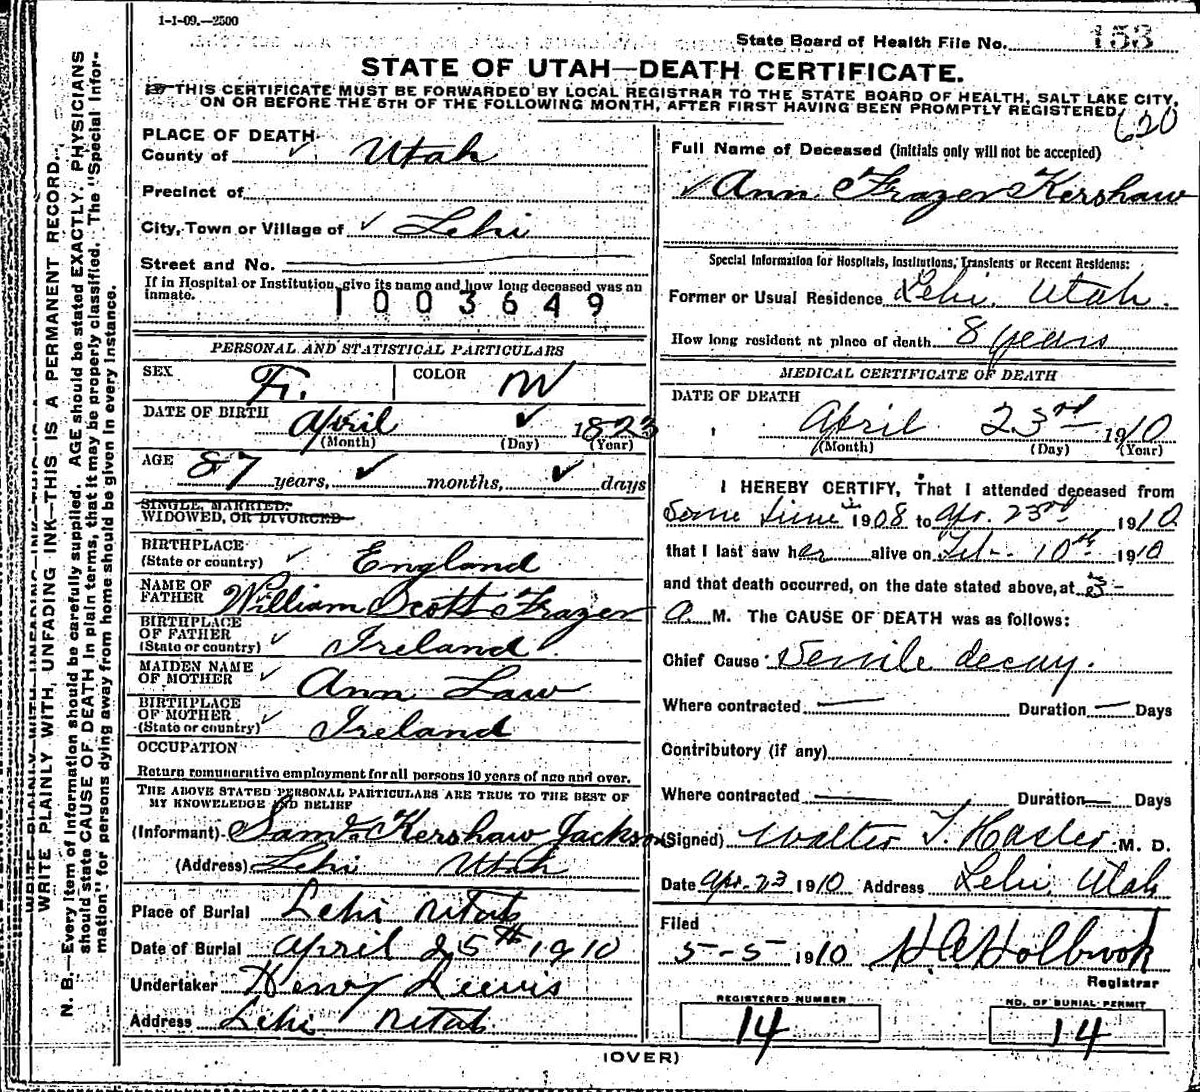 1-1-09.—2500
State Board of Health File No. 153
STATE OF UTAH—DEATH CERTIFICATE.
THIS CERTIFICATE MUST BE FORWARDED BY LOCAL REGISTRAR TO THE STATE BOARD OF HEALTH, SALT LAKE CITY,
ON OR BEFORE THE 5TH OF THE FOLLOWING MONTH, AFTER FIRST HAVING BEEN PROMPTLY REGISTERED.
620
WRITE PLAINLY WITH, UNFADING INK—THIS IS A PERMANENT RECORD.
N. B.—Every item of information should be carefully supplied. AGE should be stated EXACTLY. PHYSICIANS
should state CAUSE OF DEATH in plain terms, that it may be properly classified. The "Special Infor-
mation" for persons dying away from home should be given in every instance.
PLACE OF DEATH
County of ✓ Utah
Precinct of
City, Town or Village of ✓ Lehi
Street and No.
If in Hospital or Institution, give its name and how long deceased was an
inmate.
1003649
PERSONAL AND STATISTICAL PARTICULARS
SEX F. COLOR W
DATE OF BIRTH April ✓ 1823
(Month) (Day) (Year)
AGE 87 years, ✓ months, ✓ days
SINGLE, MARRIED,
WIDOWED, OR DIVORCED
BIRTHPLACE
(State or country) ✓ England
NAME OF
FATHER William Scott Frazer
BIRTHPLACE
OF FATHER
(State or country) ✓ Ireland
MAIDEN NAME
OF MOTHER ✓ Ann Law
BIRTHPLACE
OF MOTHER
(State or country) ✓ Ireland
OCCUPATION
Return remunerative employment for all persons 10 years of age and over.
THE ABOVE STATED PERSONAL PARTICULARS ARE TRUE TO THE BEST OF
MY KNOWLEDGE AND BELIEF
(Informant) Kershaw Jackson
(Address) Lehi Utah
Place of Burial Lehi Utah
Date of Burial April 25th 1910
Undertaker Henry Lewis
Address Lehi Utah.
Full Name of Deceased (Initials only will not be accepted)
✓ Ann Frazer Kershaw
Special Information for Hospitals, Institutions, Transients or Recent Residents:
Former or Usual Residence Lehi. Utah.
How long resident at place of death 8 years
MEDICAL CERTIFICATE OF DEATH
DATE OF DEATH
April 23rd 1910
(Month) (Day) (Year)
I HEREBY CERTIFY, That I attended deceased from
Some time 1908 to Apr. 23rd 1910
that I last saw her alive on Feb. 10th 1910
and that death occurred, on the date stated above, at 3-
a. M. The CAUSE OF DEATH was as follows:
Chief Cause Senile decay.
Where contracted — Duration — Days
Contributory (if any)
Where contracted — Duration — Days
(Signed) Walter T. Hasler M. D.
Date Apr. 23 1910 Address Lehi, Utah
Filed
5-5 1910 Holbrook
Registrar
REGISTERED NUMBER
14
NO. OF BURIAL PERMIT
14
(OVER)